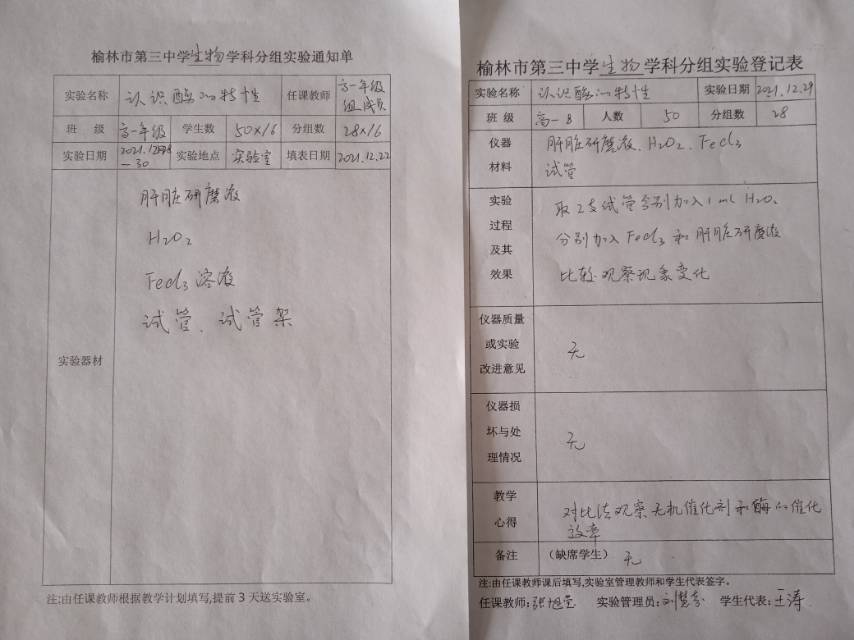 榆林市第三中学生物学科分组实验通知单
实验名称 认识酶的特性 任课教师 高一年级组成员
班 级 高一年级 学生数 50×16 分组数 28×16
实验日期 2021.12 —30 实验地点 实验室 填表日期 2021.12.22
实验器材
肝脏研磨液
H2O2
Fecl3溶液
试管、试管架
注:由任课教师根据教学计划填写,提前3天送实验室。
榆林市第三中学生物学科分组实验登记表
实验名称 认识酶的特性 实验日期 2021.12.29
班 级 高一8 人数 50 分组数 28
仪器材料
肝脏研磨液、H2O2、Fecl3
试管
实验过程及其效果
取2支试管分别加入1ml H2O2
分别加入Fecl3和肝脏研磨液
比较观察现象变化
仪器质量或实验改进意见 无
仪器损坏与处理情况 无
教学心得
对比法观察无机催化剂和酶的催化
效率
备注 (缺席学生) 无
注:由任课教师课后填写,实验室管理教师和学生代表签字。
任课教师:张旭 实验管理员:刘 学生代表:王涛